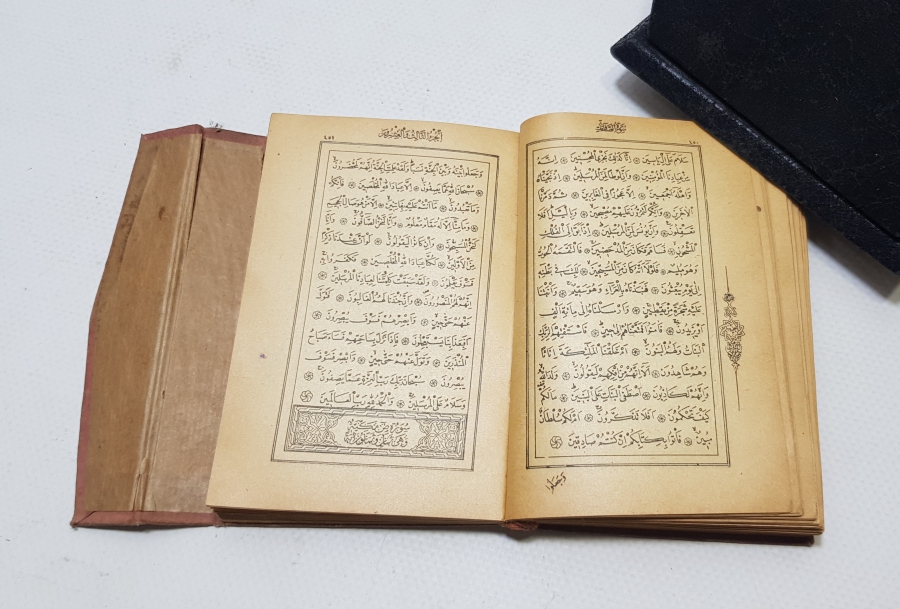 سورة الصافات
٤٥٠
سَلَامٌ عَلٰى اِلْيَاسِينَ ۞ اِنَّا كَذٰلِكَ نَجْزِي الْمُحْسِنِينَ ۞ اِنَّهُ
مِنْ عِبَادِنَا الْمُؤْمِنِينَ ۞ وَاِنَّ لُوطًا لَمِنَ الْمُرْسَلِينَ ۞ اِذْ نَجَّيْنَاهُ
وَاَهْلَهُ اَجْمَعِينَ ۞ اِلَّا عَجُوزًا فِي الْغَابِرِينَ ۞ ثُمَّ دَمَّرْنَا
الْاٰخَرِينَ ۞ وَاِنَّكُمْ لَتَمُرُّونَ عَلَيْهِمْ مُصْبِحِينَ ۞ وَبِالَّيْلِ اَفَلَا
تَعْقِلُونَ ۞ وَاِنَّ يُونُسَ لَمِنَ الْمُرْسَلِينَ ۞ اِذْ اَبَقَ اِلَى الْفُلْكِ
الْمَشْحُونِ ۞ فَسَاهَمَ فَكَانَ مِنَ الْمُدْحَضِينَ ۞ فَالْتَقَمَهُ الْحُوتُ
وَهُوَ مُلِيمٌ ۞ فَلَوْلَا اَنَّهُ كَانَ مِنَ الْمُسَبِّحِينَ ۞ لَلَبِثَ فِي بَطْنِهِ
اِلٰى يَوْمِ يُبْعَثُونَ ۞ فَنَبَذْنَاهُ بِالْعَرَاءِ وَهُوَ سَقِيمٌ ۞ وَاَنْبَتْنَا
عَلَيْهِ شَجَرَةً مِنْ يَقْطِينٍ ۞ وَاَرْسَلْنَاهُ اِلٰى مِائَةِ اَلْفٍ
اَوْ يَزِيدُونَ ۞ فَاٰمَنُوا فَمَتَّعْنَاهُمْ اِلٰى حِينٍ ۞ فَاسْتَفْتِهِمْ اَلِرَبِّكَ
الْبَنَاتُ وَلَهُمُ الْبَنُونَ ۞ اَمْ خَلَقْنَا الْمَلٰئِكَةَ اِنَاثًا
وَهُمْ شَاهِدُونَ ۞ اَلَا اِنَّهُمْ مِنْ اِفْكِهِمْ لَيَقُولُونَ ۞ وَلَدَ اللّٰهُ
وَاِنَّهُمْ لَكَاذِبُونَ ۞ اَصْطَفَى الْبَنَاتِ عَلَى الْبَنِينَ ۞ مَالَكُمْ
كَيْفَ تَحْكُمُونَ ۞ اَفَلَا تَذَكَّرُونَ ۞ اَمْ لَكُمْ سُلْطَانٌ
مُبِينٌ ۞ فَأْتُوا بِكِتَابِكُمْ اِنْ كُنْتُمْ صَادِقِينَ ۞
وجعلوا
الجزء الثالث والعشرون
٤٥١
وَجَعَلُوا بَيْنَهُ وَبَيْنَ الْجِنَّةِ نَسَبًا وَلَقَدْ عَلِمَتِ الْجِنَّةُ اِنَّهُمْ لَمُحْضَرُونَ
۞ سُبْحَانَ اللّٰهِ عَمَّا يَصِفُونَ ۞ اِلَّا عِبَادَ اللّٰهِ الْمُخْلَصِينَ ۞ فَاِنَّكُمْ
وَمَا تَعْبُدُونَ ۞ مَا اَنْتُمْ عَلَيْهِ بِفَاتِنِينَ ۞ اِلَّا مَنْ هُوَ صَالِ الْجَحِيمِ
۞ وَمَا مِنَّا اِلَّا لَهُ مَقَامٌ مَعْلُومٌ ۞ وَاِنَّا لَنَحْنُ الصَّافُّونَ ۞ وَاِنَّا
لَنَحْنُ الْمُسَبِّحُونَ ۞ وَاِنْ كَانُوا لَيَقُولُونَ ۞ لَوْ اَنَّ عِنْدَنَا ذِكْرًا
مِنَ الْاَوَّلِينَ ۞ لَكُنَّا عِبَادَ اللّٰهِ الْمُخْلَصِينَ ۞ فَكَفَرُوا بِهِ
فَسَوْفَ يَعْلَمُونَ ۞ وَلَقَدْ سَبَقَتْ كَلِمَتُنَا لِعِبَادِنَا الْمُرْسَلِينَ ۞
اِنَّهُمْ لَهُمُ الْمَنْصُورُونَ ۞ وَاِنَّ جُنْدَنَا لَهُمُ الْغَالِبُونَ ۞ فَتَوَلَّ
عَنْهُمْ حَتّٰى حِينٍ ۞ وَاَبْصِرْهُمْ فَسَوْفَ يُبْصِرُونَ ۞
اَفَبِعَذَابِنَا يَسْتَعْجِلُونَ ۞ فَاِذَا نَزَلَ بِسَاحَتِهِمْ فَسَاءَ صَبَاحُ
الْمُنْذَرِينَ ۞ وَتَوَلَّ عَنْهُمْ حَتّٰى حِينٍ ۞ وَاَبْصِرْ فَسَوْفَ
يُبْصِرُونَ ۞ سُبْحَانَ رَبِّكَ رَبِّ الْعِزَّةِ عَمَّا يَصِفُونَ ۞
وَسَلَامٌ عَلَى الْمُرْسَلِينَ ۞ وَالْحَمْدُ لِلّٰهِ رَبِّ الْعَالَمِينَ ۞
سورة ص مكية
وهي ثمان وثمانون آية